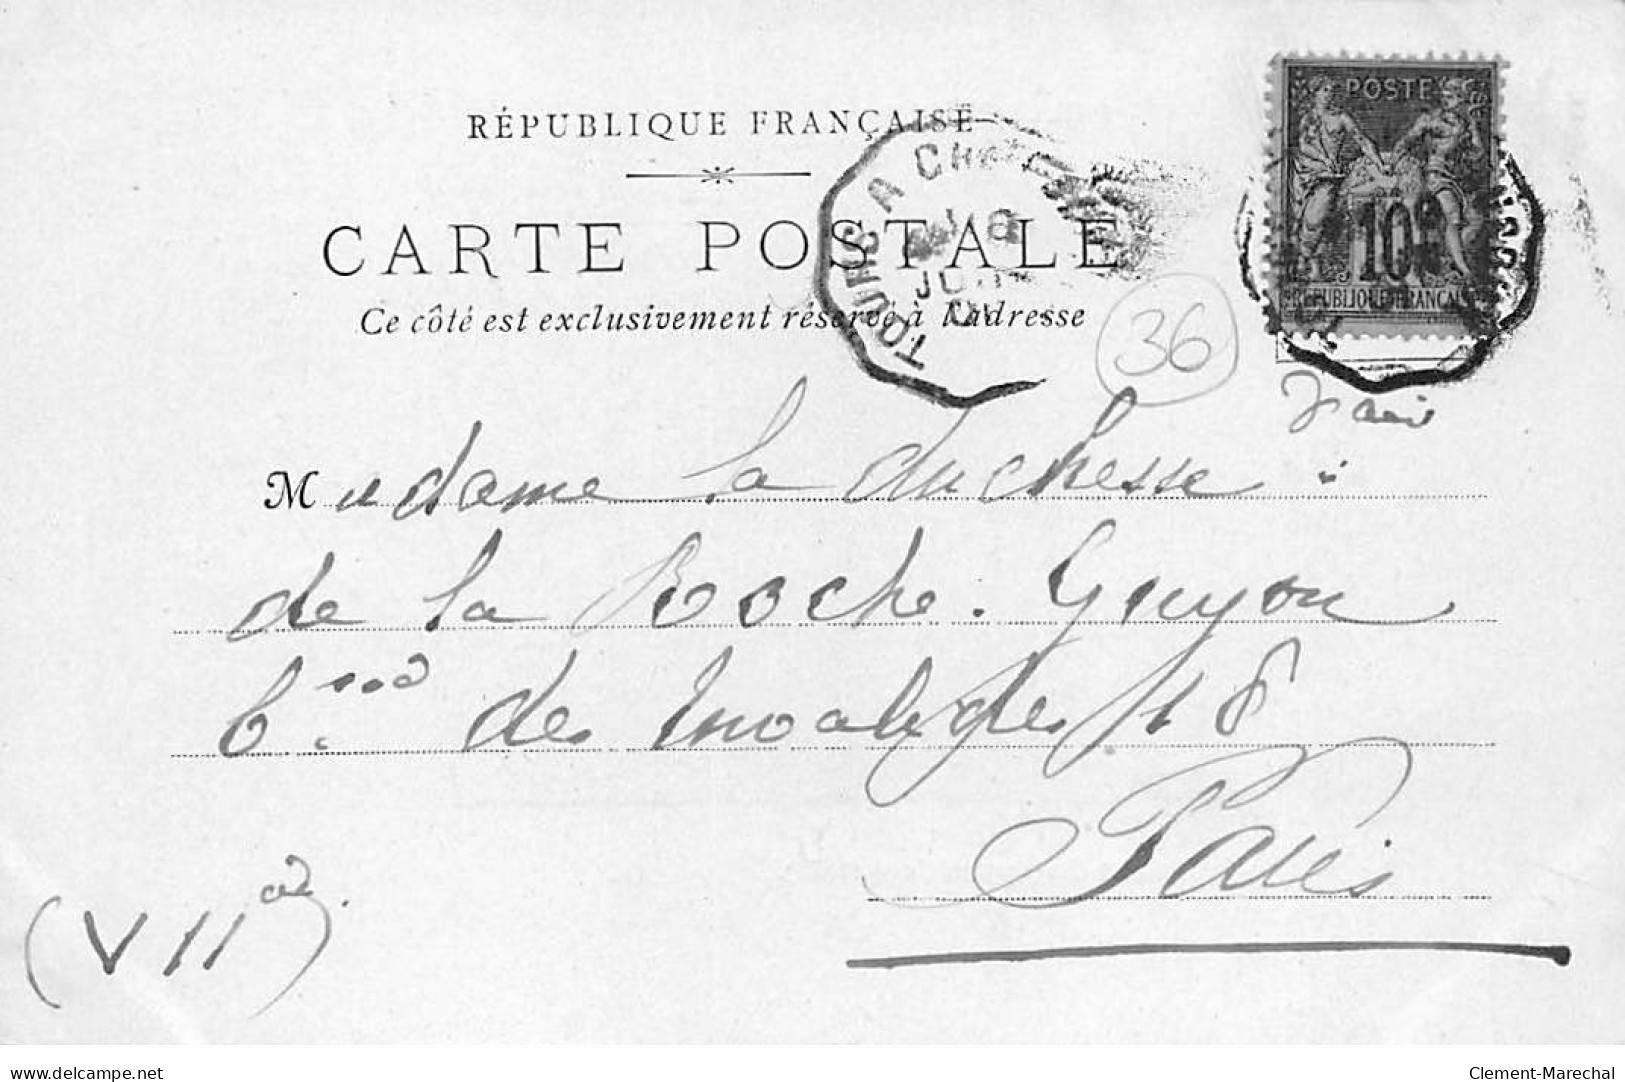 RÉPUBLIQUE FRANÇAISE
CARTE POSTALE
Ce côté est exclusivement réservé à l'adresse
TOURS A
JUIN
POSTE
10
REPUBLIQUE FRANCAISE
36
Madame la duchesse
de la Roche-Guyon
b.ard des Invalides 18
Paris
(VIIe)
delcampe.net
Clement-Marechal